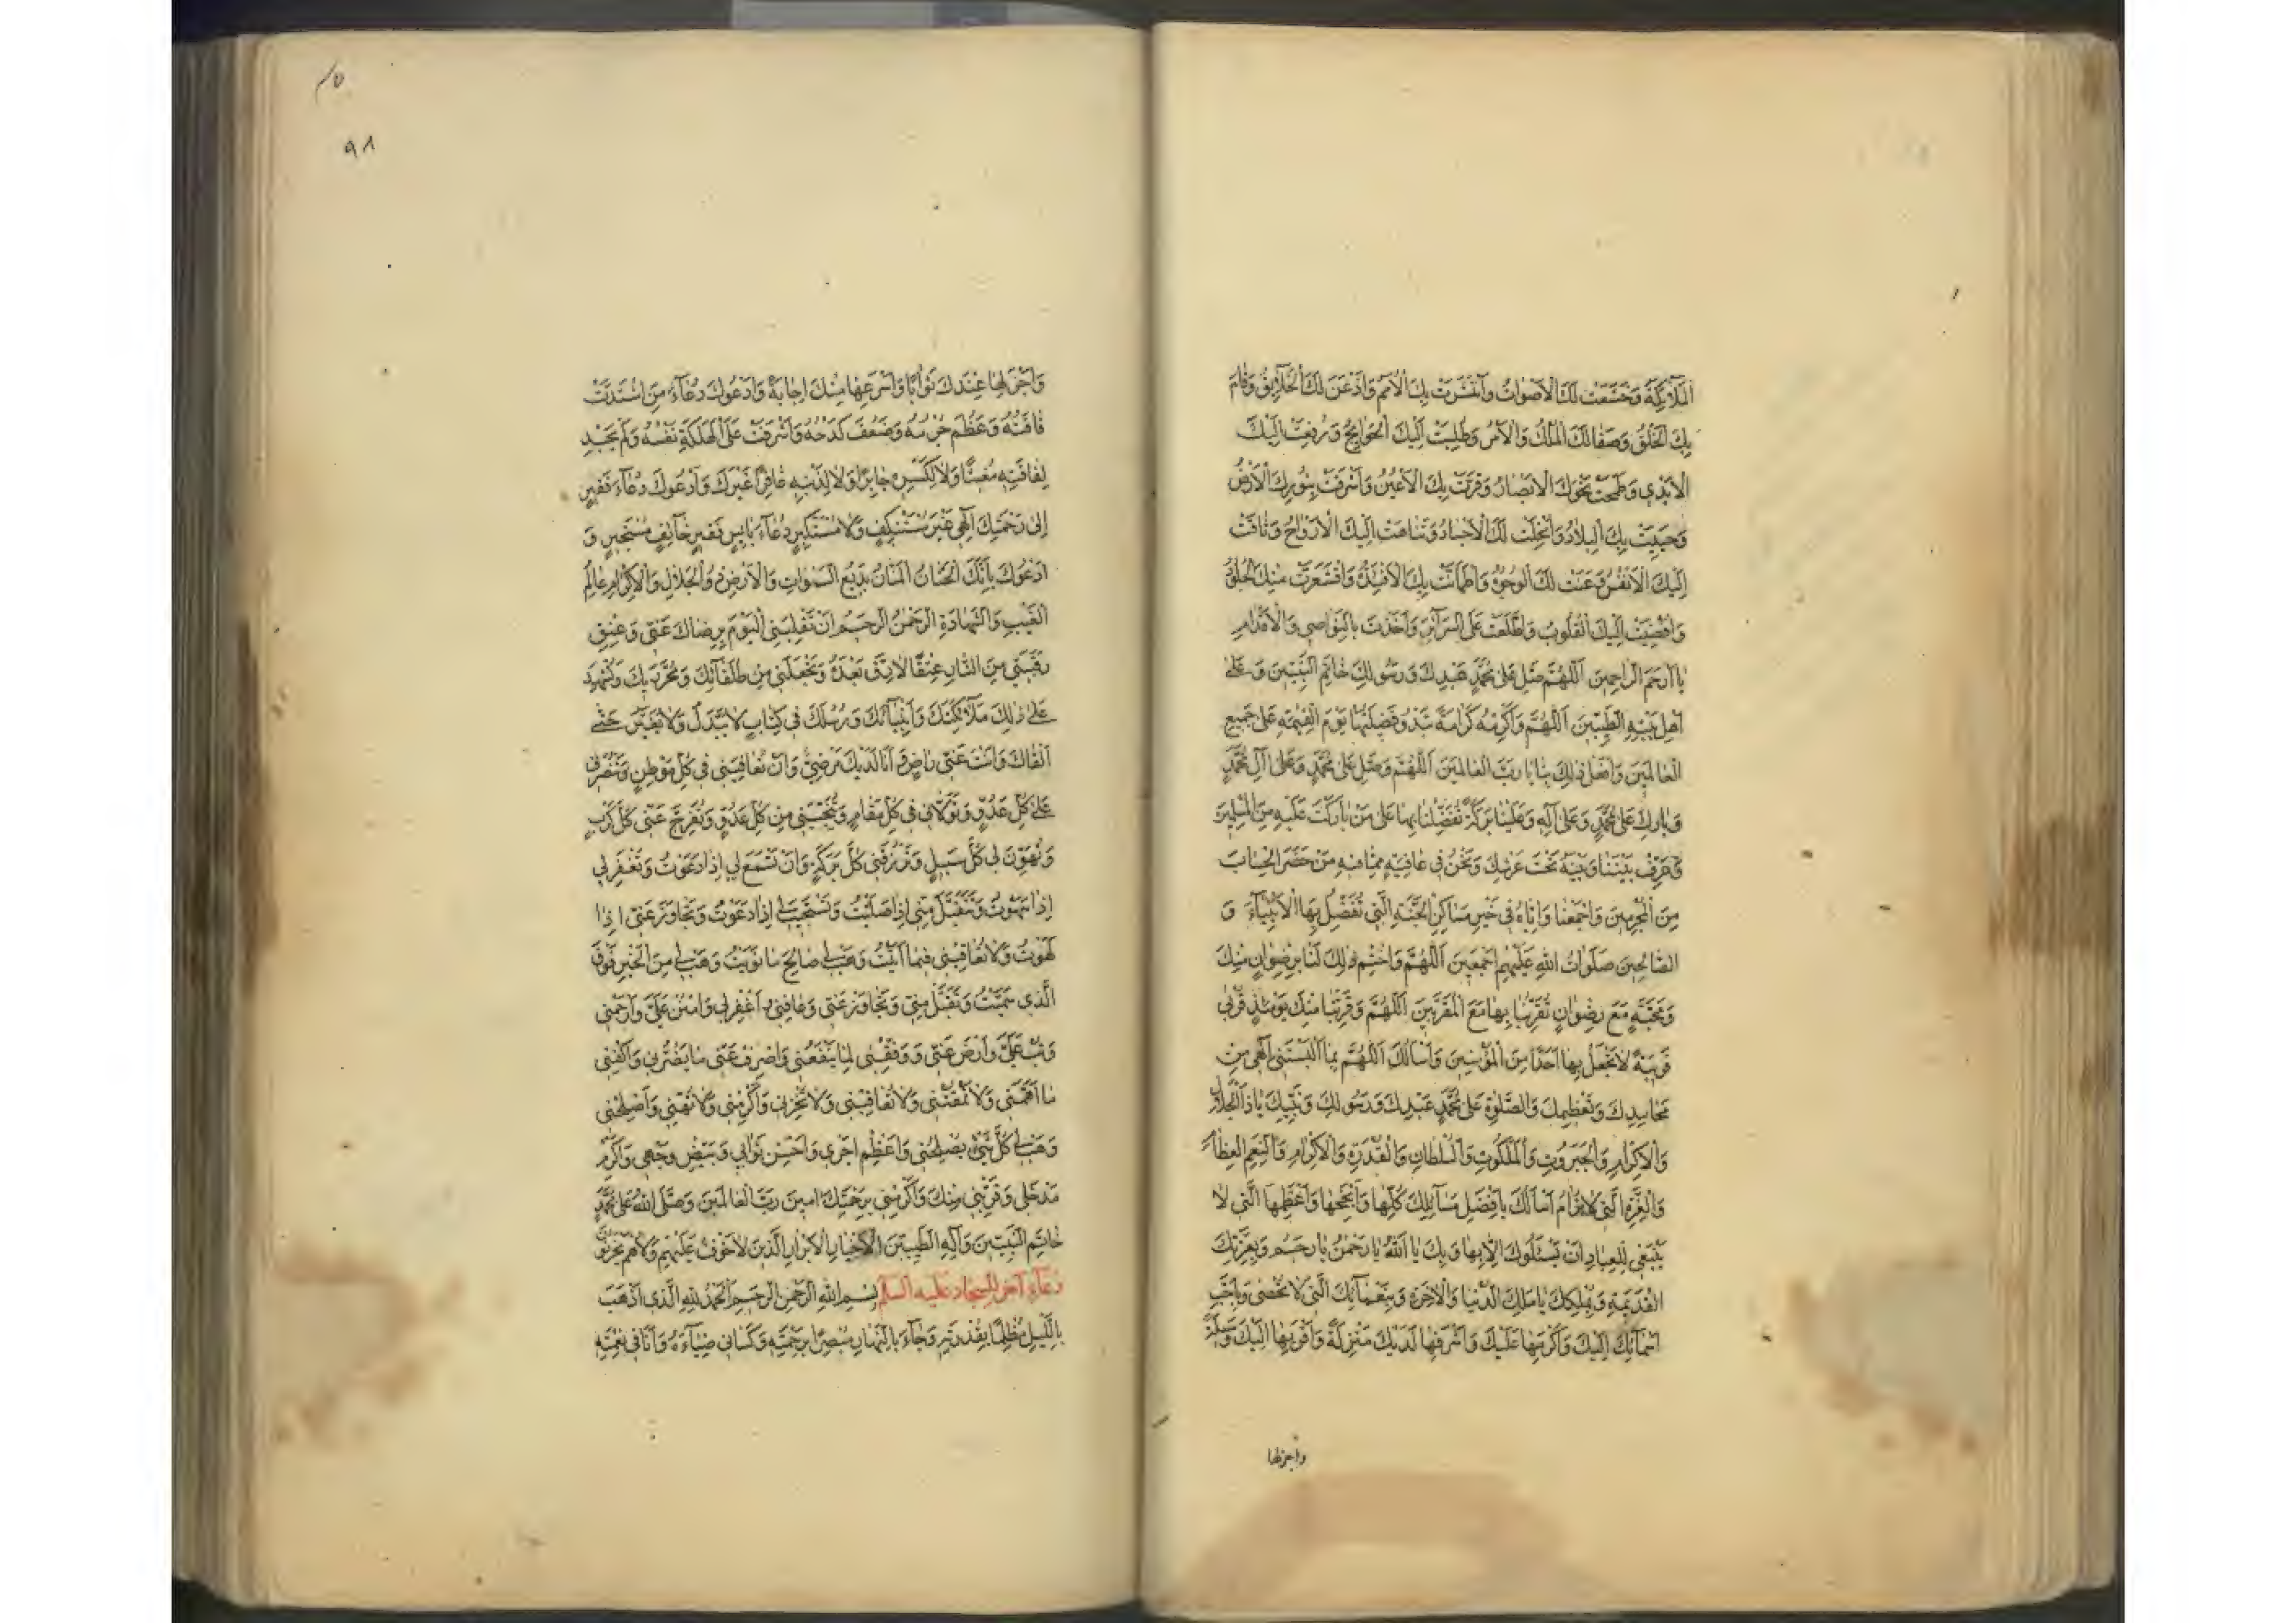 الْمَلَآئِكَةُ وَخَشَعَتْ لَكَ الْاَصْوٰاتُ وَانْتَشَرَتْ بِكَ الْاُمَمُ وَاَذْعَنَ لَكَ الْخَلَآئِقُ وَقٰامَ
بِكَ الْخَلْقُ وَصَفٰا لَكَ الْمُلْكُ وَالْاَمْرُ وَطُلِبَتْ اِلَيْكَ الْحَوٰائِجُ وَرُفِعَتْ اِلَيْكَ
الْاَيْدِي وَطَمَحَتْ نَحْوَكَ الْاَبْصٰارُ وَقَرَّتْ بِكَ الْاَعْيُنُ وَاَشْرَقَتْ بِنُورِكَ الْاَرْضُ
وَحَيِيَتْ بِكَ الْبِلٰادُ وَ لَكَ الْاَجْسٰادُ وَتَنٰاهَتْ اِلَيْكَ الْاَرْوٰاحُ وَتٰاقَتْ
اِلَيْكَ الْاَنْفُسُ وَعَنَتْ لَكَ الْوُجُوهُ وَاطْمَاَنَّتْ بِكَ الْاَفْئِدَةُ وَاقْشَعَرَّتْ مِنْكَ الْجُلُودُ
وَاُفْضِيَتْ اِلَيْكَ الْقُلُوبُ وَاطَّلَعْتَ عَلَى السَّرَآئِرِ وَاَخَذْتَ بِالنَّوٰاصِي وَالْاَقْدٰامِ
يٰا اَرْحَمَ الرّٰاحِمِينَ اَللّٰهُمَّ صَلِّ عَلىٰ مُحَمَّدٍ عَبْدِكَ وَرَسُولِكَ خٰاتَمِ النَّبِيّينَ وَعَلىٰ
اَهْلِ بَيْتِهِ الطَّيِّبِينَ اَللّٰهُمَّ وَاَكْرِمْهُ كَرٰامَةً تَبْدُو فَضِيلَتُهٰا يَوْمَ الْقِيٰمَةِ عَلىٰ جَمِيعِ
الْعٰالَمِينَ وَافْعَلْ ذٰلِكَ بِنٰا يٰا رَبَّ الْعٰالَمِينَ اَللّٰهُمَّ وَصَلِّ عَلىٰ مُحَمَّدٍ وَعَلىٰ آلِ مُحَمَّدٍ
وَبٰارِكْ عَلىٰ مُحَمَّدٍ وَعَلىٰ آلِهِ وَعَلَيْنٰا بَرَكَةً تُفَضِّلُنٰا بِهٰا عَلىٰ مَنْ بٰارَكْتَ عَلَيْهِ مِنَ الْمُسْلِمِينَ
وَعَرِّفْ بَيْنَنٰا وَبَيْنَهُ تَحْتَ عَرْشِكَ وَنَحْنُ فِي عٰافِيَةٍ مِمّٰا فِيهِ مَنْ حَضَرَ الْحِسٰابَ
مِنَ الْمُجْرِمِينَ وَاجْمَعْنٰا وَاِيّٰاهُ فِي خَيْرِ مَسٰاكِنِ الْجَنَّةِ الَّتِي تُفَضِّلُ بِهَا الْاَنْبِيٰآءَ وَ
الصّٰالِحِينَ صَلَوٰاتُ اللهِ عَلَيْهِمْ اَجْمَعِينَ اَللّٰهُمَّ وَاخْتِمْ ذٰلِكَ لَنٰا بِرِضْوٰانٍ مِنْكَ
وَمَحَبَّةٍ مَعَ رِضْوٰانٍ تُقَرِّبُنٰا بِهٰا مَعَ الْمُقَرَّبِينَ اَللّٰهُمَّ وَقَرِّبْنٰا مِنْكَ يَوْمَئِذٍ قُرْبىٰ
قَرِيبَةً لٰا تَجْعَلُ بِهٰا اَحَدًا مِنَ الْمُؤْمِنِينَ وَاَسْاَلُكَ اَللّٰهُمَّ بِمٰا اَلْبَسْتَنِي اِلٰهِي مِنْ
مَحٰامِدِكَ وَتَعْظِيمِكَ وَالصَّلٰوةِ عَلىٰ مُحَمَّدٍ عَبْدِكَ وَرَسُولِكَ وَنَبِيِّكَ يٰا ذَا الْجَلٰالِ
وَالْاِكْرٰامِ وَالْجَبَرُوتِ وَالْمَلَكُوتِ وَالسُّلْطٰانِ وَالْقُدْرَةِ وَالْاِكْرٰامِ وَالنِّعَمِ الْعِظٰامِ
وَالْعِزَّةِ الَّتِي لٰا تُرٰامُ اَسْاَلُكَ بِاَفْضَلِ مَسٰآئِلِكَ كُلِّهٰا وَاَنْجَحِهٰا وَاَعْظَمِهَا الَّتِي لٰا
يَنْبَغِي لِلْعِبٰادِ اَنْ يَسْئَلُوكَ اِلّٰا بِهٰا وَبِكَ يٰا اَللهُ يٰا رَحْمٰنُ يٰا رَحِيمُ وَبِعِزَّتِكَ
الْقَدِيمَةِ وَبِمُلْكِكَ يٰا مَلِكَ الدُّنْيٰا وَالْاٰخِرَةِ وَبِنَعْمٰآئِكَ الَّتِي لٰا تُحْصىٰ وَبِاَحَبِّ
اَسْمٰآئِكَ اِلَيْكَ وَاَكْرَمِهٰا عَلَيْكَ وَاَشْرَفِهٰا لَدَيْكَ مَنْزِلَةً وَاَقْرَبِهٰا اِلَيْكَ وَسِيلَةً
واجزلها
٩٨
وَاَجْزَلِهٰا عِنْدَكَ ثَوٰابًا وَاَسْرَعِهٰا مِنْكَ اِجٰابَةً وَاَدْعُوكَ دُعٰآءَ مَنِ اشْتَدَّتْ
فٰاقَتُهُ وَعَظُمَ جُرْمُهُ وَضَعُفَ كَدْحُهُ وَاَشْرَفَتْ عَلَى الْهَلَكَةِ نَفْسُهُ وَلَمْ يَجِدْ
لِفٰاقَتِهِ مُغِيثًا وَلٰا لِكَسْرِهِ جٰابِرًا وَلٰا لِذَنْبِهِ غٰافِرًا غَيْرَكَ وَاَدْعُوكَ دُعٰآءَ فَقِيرٍ
اِلىٰ رَحْمَتِكَ اِلٰهِي غَيْرَ مُسْتَنْكِفٍ وَلٰا مُسْتَكْبِرٍ دُعٰآءَ بٰائِسٍ فَقِيرٍ خٰآئِفٍ مُسْتَجِيرٍ وَ
اَدْعُوكَ بِاَنَّكَ الْحَنّٰانُ الْمَنّٰانُ بَدِيعُ السَّمٰوٰاتِ وَالْاَرْضِ ذُو الْجَلٰالِ وَالْاِكْرٰامِ عٰالِمُ
الْغَيْبِ وَالشَّهٰادَةِ الرَّحْمٰنُ الرَّحِيمُ اَنْ تَقْلِبَنِي الْيَوْمَ بِرِضٰاكَ عَنِّي وَعِتْقِ
رَقَبَتِي مِنَ النّٰارِ عِتْقًا لٰا رِقَّ بَعْدَهُ وَتَجْعَلَنِي مِنْ طُلَقٰآئِكَ وَمُحَرَّرِيكَ وَتُشْهِدَ
عَلىٰ ذٰلِكَ مَلَآئِكَتَكَ وَاَنْبِيٰآئَكَ وَرُسُلَكَ فِي كِتٰابٍ لٰا يُبَدَّلُ وَلٰا يُغَيَّرُ حَتّٰى
اَلْقٰاكَ وَاَنْتَ عَنِّي رٰاضٍ وَ اَنَا لَدَيْكَ مَرْضِيٌّ وَاَنْ تُعٰافِيَنِي فِي كُلِّ مَوْطِنٍ وَتَنْصُرَنِي
عَلىٰ كُلِّ عَدُوٍّ وَتَوَلّٰانِي فِي كُلِّ مَقٰامٍ وَتُنَجِّيَنِي مِنْ كُلِّ عَدُوٍّ وَتُفَرِّجَ عَنِّي كُلَّ كَرْبٍ
وَتُهَوِّنَ لِي كُلَّ سَبِيلٍ وَتَرْزُقَنِي كُلَّ بَرَكَةٍ وَاَنْ تَسْمَعَ لِي اِذٰا دَعَوْتُ وَتَغْفِرَ لِي
اِذٰا سَهَوْتُ وَتَتَقَبَّلَ مِنِّي اِذٰا صَلَّيْتُ وَتَسْتَجِيبَ لِي اِذٰا دَعَوْتُ وَتَجٰاوَزَ عَنِّي اِذٰا
لَهَوْتُ وَلٰا تُعٰاقِبَنِي فِيمٰا اَتَيْتُ وَهَبْ لِي صٰالِحَ مٰا نَوَيْتُ وَهَبْ لِي مِنَ الْخَيْرِ فَوْقَ
الَّذِي سَمَّيْتُ وَتَقَبَّلْ مِنِّي وَتَجٰاوَزْ عَنِّي وَعٰافِنِي وَ اغْفِرْ لِي وَامْنُنْ عَلَيَّ وَارْحَمْنِي
وَتُبْ عَلَيَّ وَارْضَ عَنِّي وَوَفِّقْنِي لِمٰا يَنْفَعُنِي وَاصْرِفْ عَنِّي مٰا يَضُرُّنِي وَاكْفِنِي
مٰا اَهَمَّنِي وَلٰا تَمْقُتْنِي وَلٰا تُعٰاقِبْنِي وَلٰا تُخْزِنِي وَاَكْرِمْنِي وَلٰا تُهِنِّي وَاَصْلِحْنِي
وَهَبْ لِي كُلَّ شَيْءٍ يُصْلِحُنِي وَاَعْظِمْ اَجْرِي وَاَحْسِنْ ثَوٰابِي وَبَيِّضْ وَجْهِي وَاَكْرِمْ
مَدْخَلِي وَقَرِّبْنِي مِنْكَ وَاَكْرِمْنِي بِرَحْمَتِكَ اٰمِينَ رَبَّ الْعٰالَمِينَ وَصَلَّى اللهُ عَلىٰ مُحَمَّدٍ
خٰاتَمِ النَّبِيِّينَ وَآلِهِ الطَّيِّبِينَ الْاَخْيٰارِ الْاَبْرٰارِ الَّذِينَ لٰا خَوْفٌ عَلَيْهِمْ وَلٰا هُمْ يَحْزَنُونَ
دُعٰآء آخر للسجاد عليه السلام بِسْمِ اللهِ الرَّحْمٰنِ الرَّحِيمِ اَلْحَمْدُ لِلّٰهِ الَّذِي اَذْهَبَ
بِاللَّيْلِ مُظْلِمًا بِقُدْرَتِهِ وَجٰآءَ بِالنَّهٰارِ مُبْصِرًا بِرَحْمَتِهِ وَكَسٰانِي ضِيٰآءَهُ وَاَنَا فِي نِعْمَتِهِ